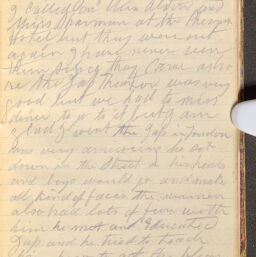 I called on Miss Alston and
Miss Sharman at the Prospect
Hotel but they were out
again I have never seen
them since they came ashore
The Jap Theatre was very
good but we had to miss
dinner to go to it but I am
glad I went the Jap in London
was very amusing he sat
down in the street on his heels
and boys would go and make
all kind of faces the women
also had lots of fun with
him he met and educated
Jap and he tried to teach